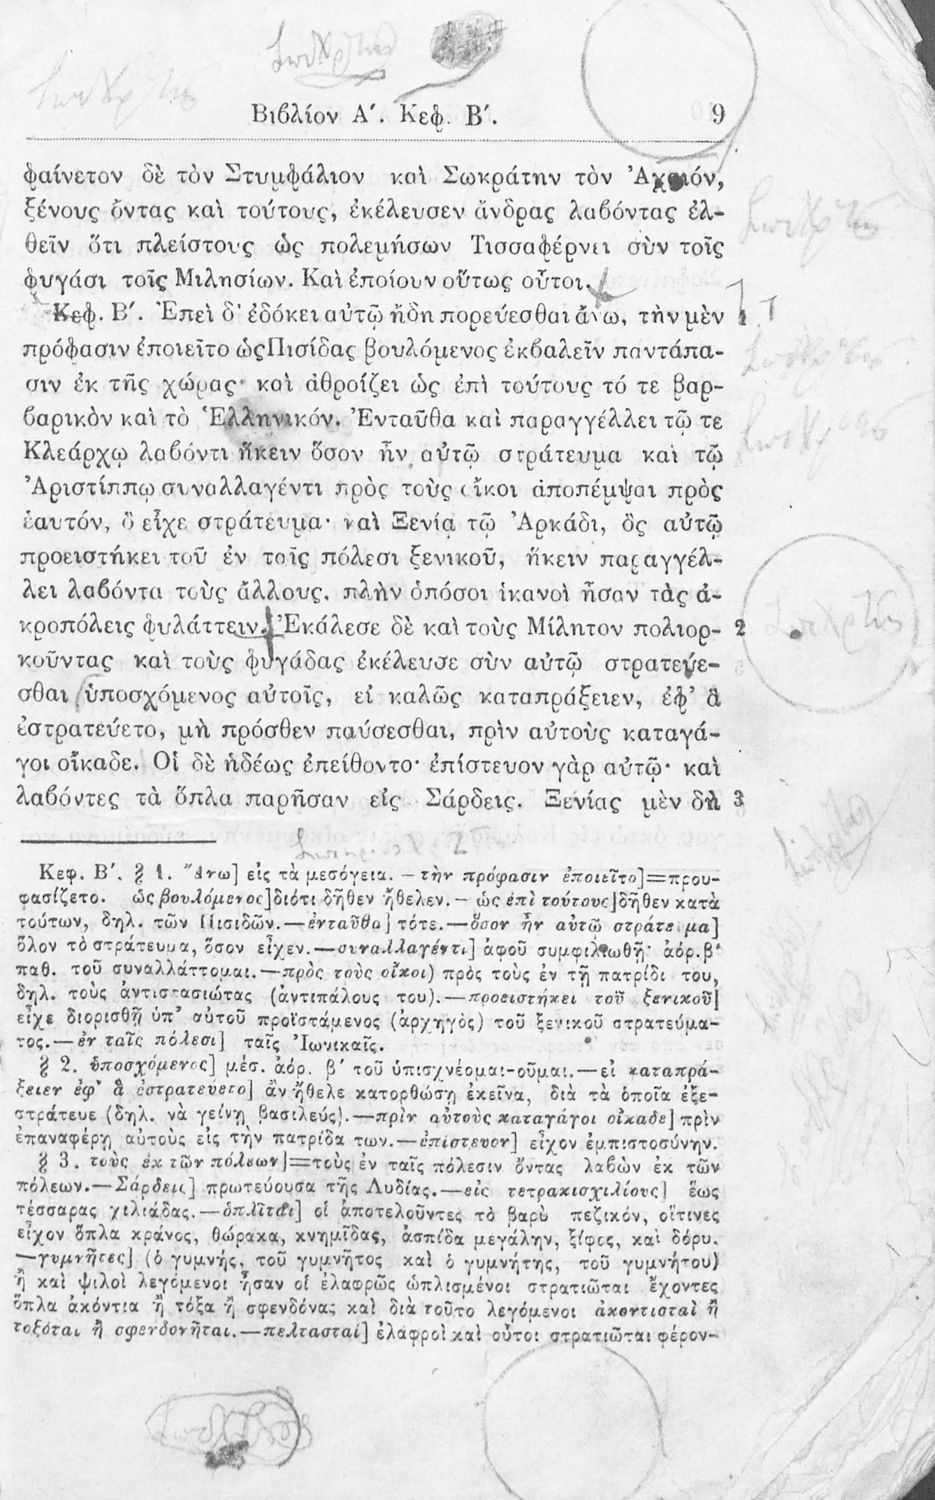 Βιβλίον Α΄. Κεφ. Β΄. 9
φαίνετον δὲ τὸν Στυμφάλιον καὶ Σωκράτην τὸν Ἀχαιόν,
ξένους ὄντας καὶ τούτους, ἐκέλευσεν ἄνδρας λαβόντας ἐλ-
θεῖν ὅτι πλείστους ὡς πολεμήσων Τισσαφέρνει σὺν τοῖς
φυγάσι τοῖς Μιλησίων. Καὶ ἐποίουν οὕτως οὗτοι.
Κεφ. Β΄. Ἐπεὶ δ' ἐδόκει αὐτῷ ἤδη πορεύεσθαι ἄνω, τὴν μὲν 1
πρόφασιν ἐποιεῖτο ὡς Πισίδας βουλόμενος ἐκβαλεῖν παντάπα-
σιν ἐκ τῆς χώρας· καὶ ἀθροίζει ὡς ἐπὶ τούτους τό τε βαρ-
βαρικὸν καὶ τὸ Ἑλληνικόν. Ἐνταῦθα καὶ παραγγέλλει τῷ τε
Κλεάρχῳ λαβόντι ἥκειν ὅσον ἦν αὐτῷ στράτευμα καὶ τῷ
Ἀριστίππῳ συναλλαγέντι πρὸς τοὺς οἴκοι ἀποπέμψαι πρὸς
ἑαυτόν, ὃ εἶχε στράτευμα· καὶ Ξενίᾳ τῷ Ἀρκάδι, ὃς αὐτῷ
προειστήκει τοῦ ἐν ταῖς πόλεσι ξενικοῦ, ἥκειν παραγγέλ-
λει λαβόντα τοὺς ἄλλους, πλὴν ὁπόσοι ἱκανοὶ ἦσαν τὰς ἀ-
κροπόλεις φυλάττειν. Ἐκάλεσε δὲ καὶ τοὺς Μίλητον πολιορ- 2
κοῦντας καὶ τοὺς φυγάδας ἐκέλευσε σὺν αὐτῷ στρατεύε-
σθαι ὑποσχόμενος αὐτοῖς, εἰ καλῶς καταπράξειεν, ἐφ' ἃ
ἐστρατεύετο, μὴ πρόσθεν παύσεσθαι, πρὶν αὐτοὺς καταγά-
γοι οἴκαδε. Οἱ δὲ ἡδέως ἐπείθοντο· ἐπίστευον γὰρ αὐτῷ· καὶ
λαβόντες τὰ ὅπλα παρῆσαν εἰς Σάρδεις. Ξενίας μὲν δὴ 3
Κεφ. Β΄. § 1. Ἄνω] εἰς τὰ μεσόγεια. — τὴν πρόφασιν ἐποιεῖτο]=πρου-
φασίζετο. ὡς βουλόμενος] διότι δῆθεν ἤθελεν. — ὡς ἐπὶ τούτους] δῆθεν κατὰ
τούτων, δηλ. τῶν Πισιδῶν.—ἐνταῦθα] τότε.—ὅσον ἦν αὐτῷ στράτευμα]
ὅλον τὸ στράτευμα, ὅσον εἶχεν.—συναλλαγέντι] ἀφοῦ συμφιλιωθῇ· ἀόρ. β΄
παθ. τοῦ συναλλάττομαι.—πρὸς τοὺς οἴκοι) πρὸς τοὺς ἐν τῇ πατρίδι του,
δηλ. τοὺς ἀντιστασιώτας (ἀντιπάλους του).—προειστήκει τοῦ ξενικοῦ]
εἶχε διορισθῆ ὑπ' αὐτοῦ προϊστάμενος (ἀρχηγὸς) τοῦ ξενικοῦ στρατεύμα-
τος.—ἐν ταῖς πόλεσι] ταῖς Ἰωνικαῖς.
§ 2. ὑποσχόμενος] μέσ. ἀόρ. β΄ τοῦ ὑπισχνέομαι-οῦμαι.—εἰ καταπρά-
ξειεν ἐφ' ἃ ἐστρατεύετο] ἂν ἤθελε κατορθώσῃ ἐκεῖνα, διὰ τὰ ὁποῖα ἐξε-
στράτευε (δηλ. νὰ γείνῃ βασιλεύς).—πρὶν αὐτοὺς καταγάγοι οἴκαδε] πρὶν
ἐπαναφέρῃ αὐτοὺς εἰς τὴν πατρίδα των.—ἐπίστευον] εἶχον ἐμπιστοσύνην.
§ 3. τοὺς ἐκ τῶν πόλεων]=τοὺς ἐν ταῖς πόλεσιν ὄντας λαβὼν ἐκ τῶν
πόλεων.—Σάρδεις] πρωτεύουσα τῆς Λυδίας.—εἰς τετρακισχιλίους] ἕως
τέσσαρας χιλιάδας.—ὁπλῖται] οἱ ἀποτελοῦντες τὸ βαρὺ πεζικόν, οἵτινες
εἶχον ὅπλα κράνος, θώρακα, κνημῖδας, ἀσπίδα μεγάλην, ξίφος, καὶ δόρυ.
—γυμνῆτες] (ὁ γυμνής, τοῦ γυμνῆτος καὶ ὁ γυμνήτης, τοῦ γυμνήτου)
ἢ καὶ ψιλοὶ λεγόμενοι ἦσαν οἱ ἐλαφρῶς ὡπλισμένοι στρατιῶται ἔχοντες
ὅπλα ἀκόντια ἢ τόξα ἢ σφενδόνας καὶ διὰ τοῦτο λεγόμενοι ἀκοντισταὶ ἢ
τοξόται ἢ σφενδονῆται.—πελτασταί] ἐλαφροὶ καὶ οὗτοι στρατιῶται φέρον-